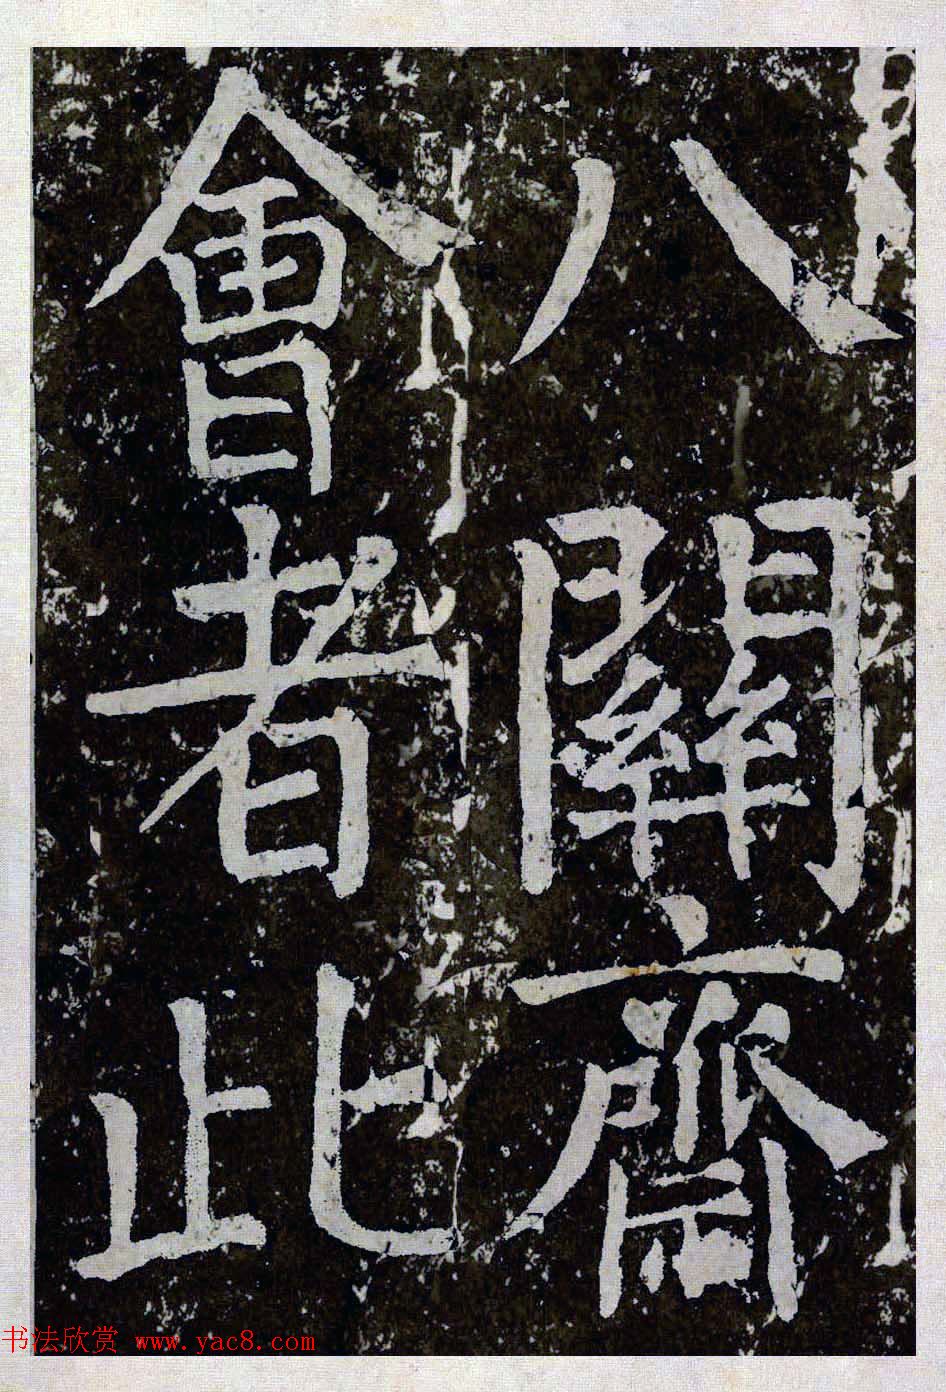 八關齋
會者此
书法欣赏 www.yac8.com